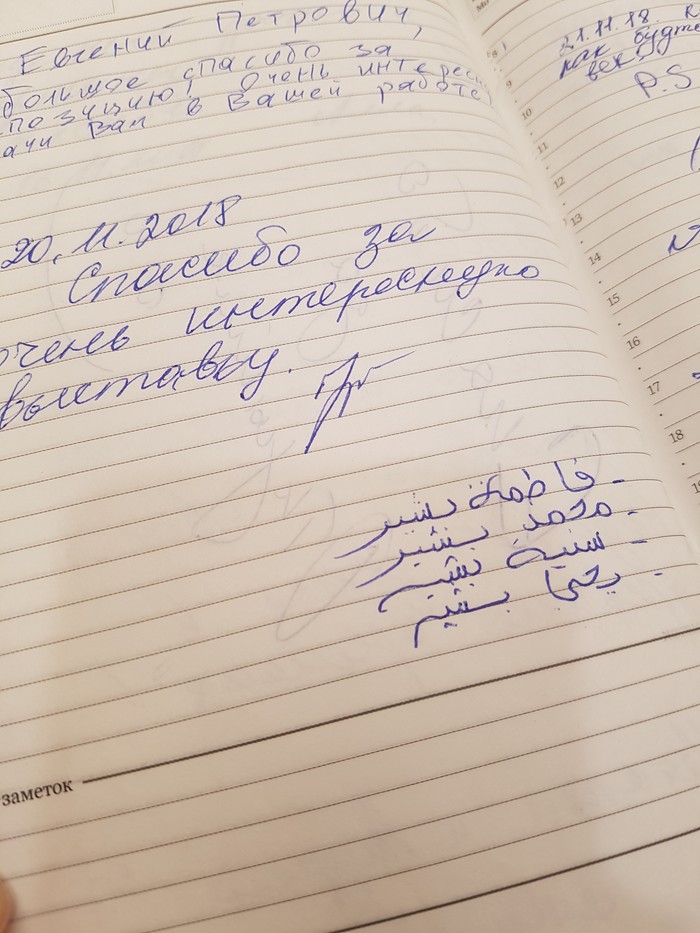 Евгений Петрович,
большое спасибо за
позицию! очень интересн
ачи Вам в Вашей работе
20.11.2018
Спасибо за
очень интересную
выставку.
- فاطمة بشير
- محمد بشير
- سنية بشير
- يحيا بشير
заметок
21.11.18.
как будто
век
P.S
8
9
10
11
12
13
14
15
16
17
18